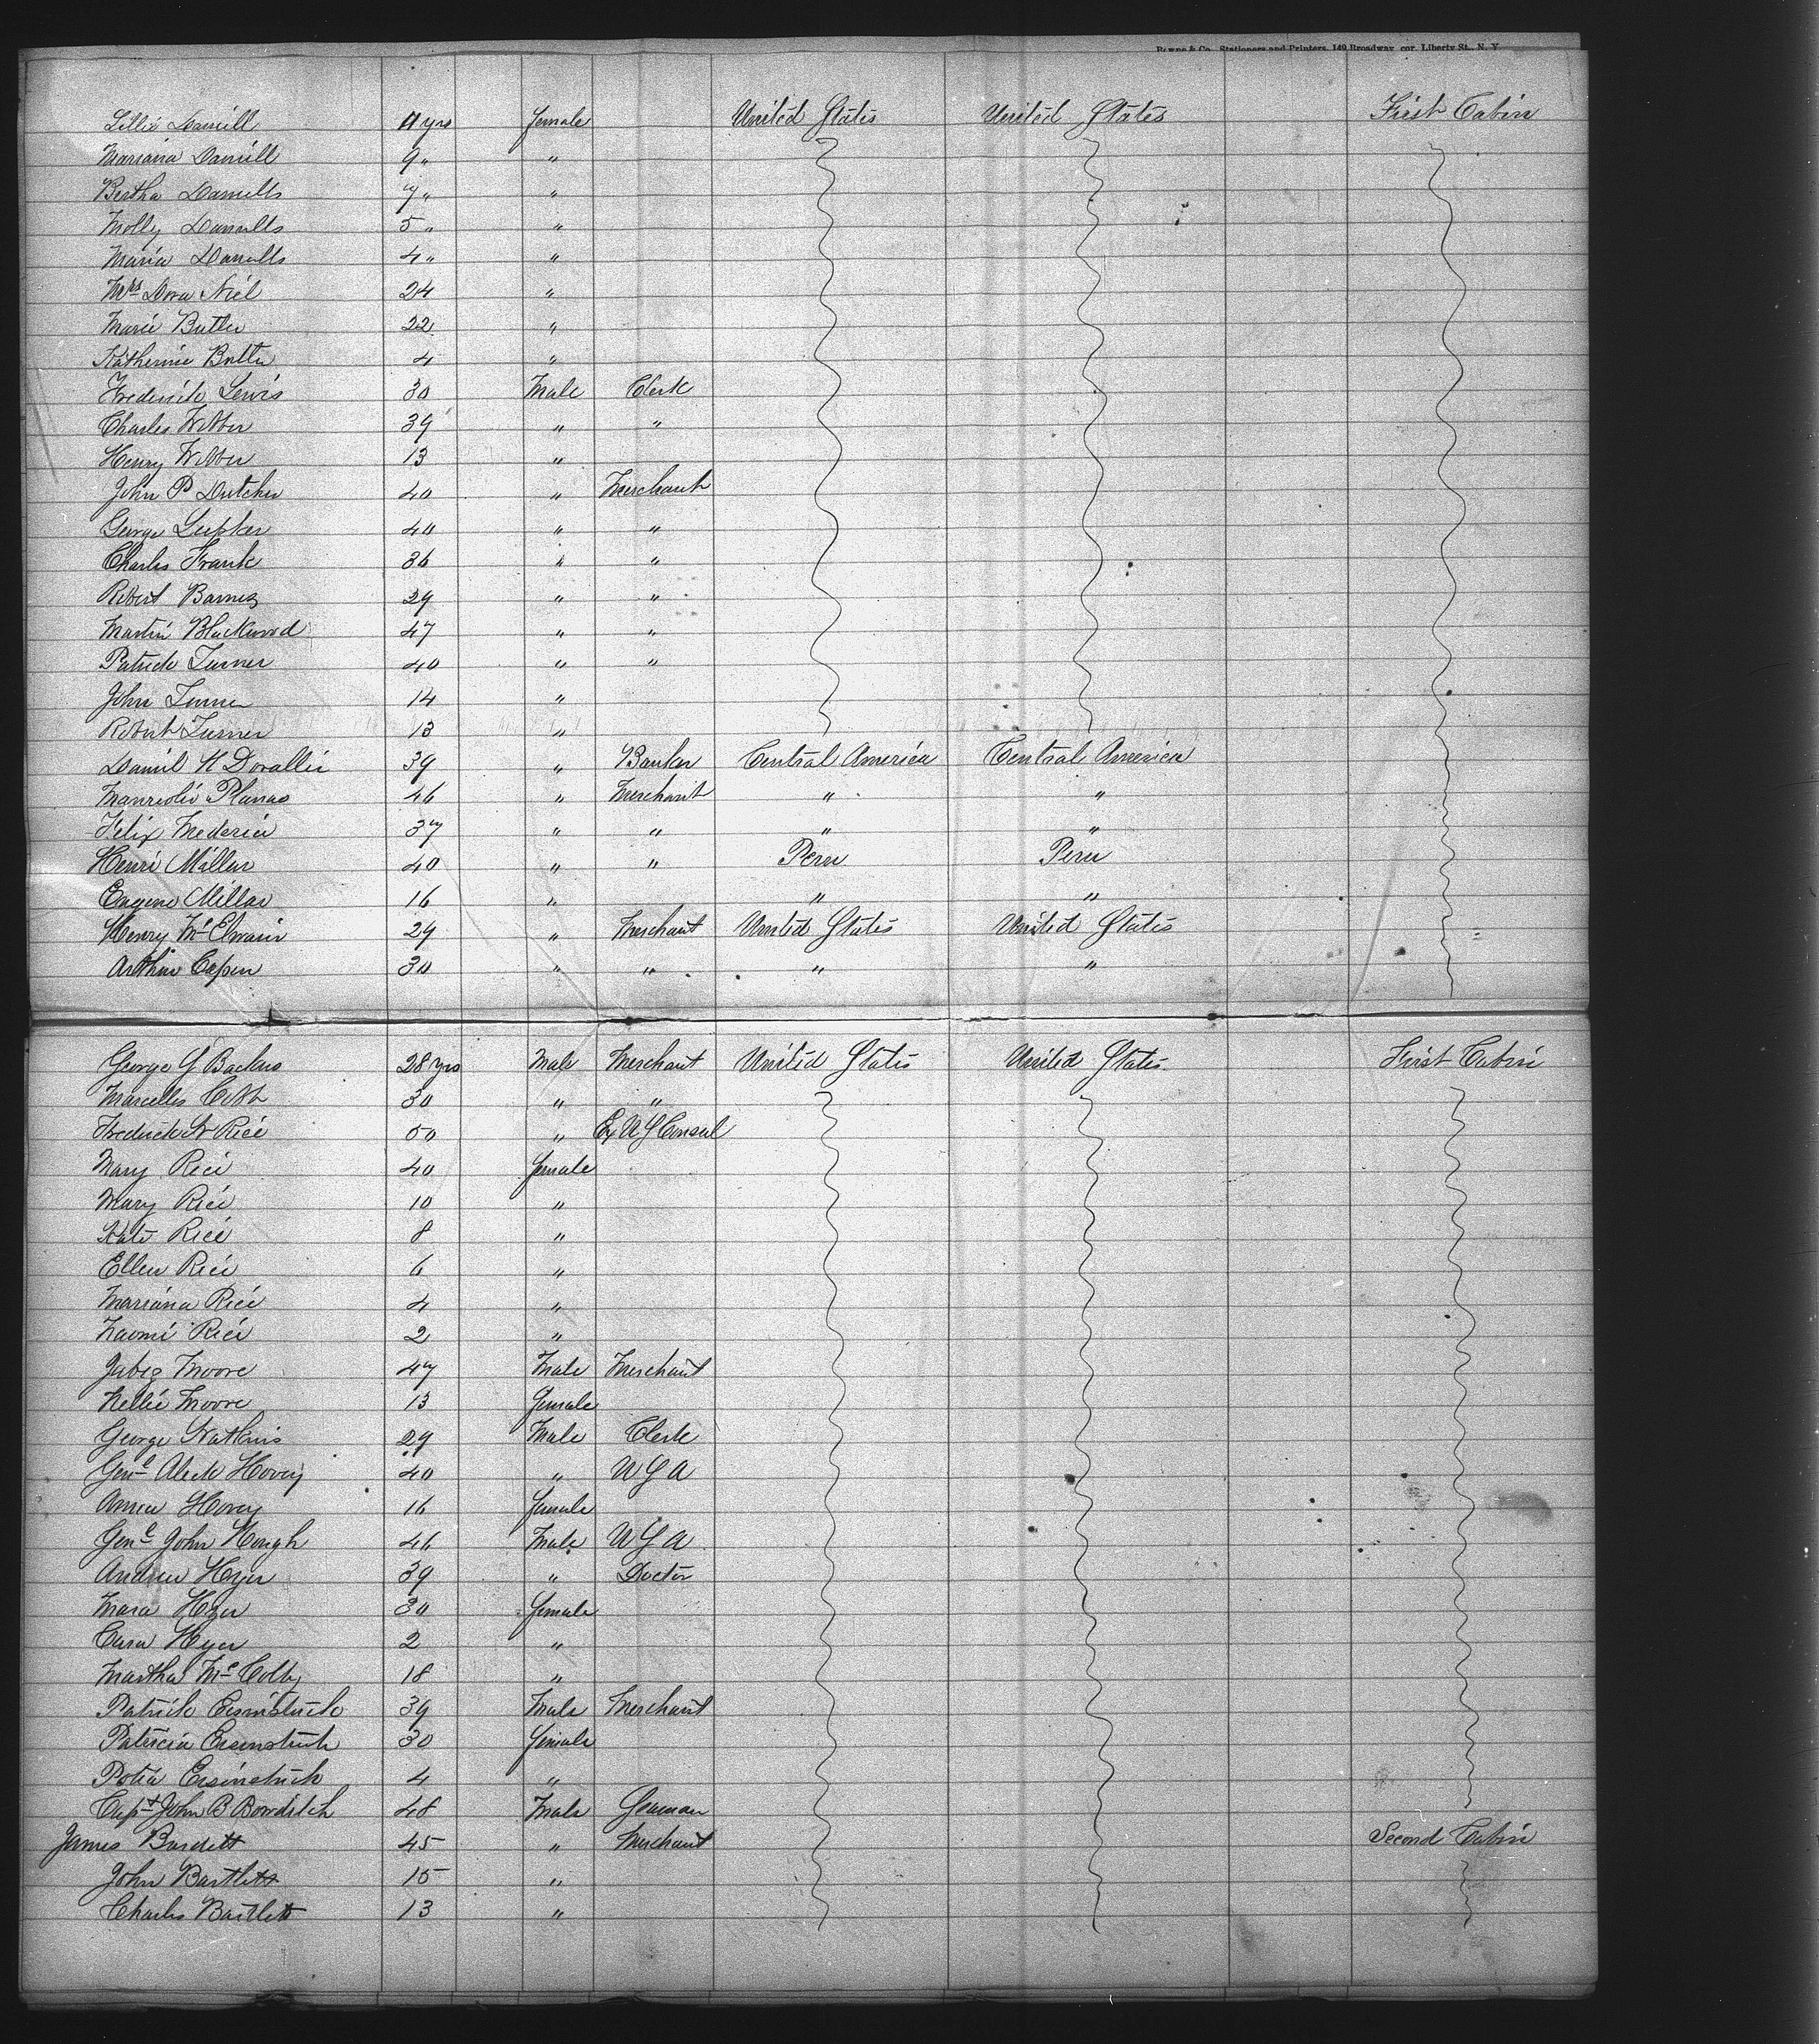 Stationers and Printers, 149 Broadway, cor. Liberty St., N. Y.
Lillie 11 yrs female United States United States First Cabin
Mariana Daniell 9 " "
Bertha Daniells 7 " "
Molly Daniells 5 " "
Maria Daniells 4 " "
Mrs Dora Niel 24 "
Marie Butler 22 "
Katherine Butler 4 "
Frederick Lewis 30 Male Clerk
Charles Webber 39 " "
Henry Webber 13 "
John P Dutcher 40 " Merchant
George Lupker 40 " "
Charles Frank 36 " "
Robert Barnes 29 " "
Martin Blackwood 47 " "
Patrick Turner 40 " "
John Turner 14 "
Robert Turner 13 "
Daniel H 39 " Banker Central America Central America
Planas 46 " Merchant " "
Felix 37 " " " "
Henri Millar 40 " " Peru Peru
Eugene Millar 16 " " "
Henry McElwain 29 " Merchant United States United States
Arthur Capen 30 " " " "
George G Backus 28 yrs Male Merchant United States United States First Cabin
Marcellus Cobb 30 " "
Frederick W Rice 50 " Ex U S Consul
Mary Rice 40 female
Mary Rice 10 "
Kate Rice 8 "
Ellen Rice 6 "
Mariana Rice 4 "
Naomi Rice 2 "
Jabez Moore 47 Male Merchant
Nellie Moore 13 female
George Watkins 29 Male Clerk
Genl Aleck Hovey 40 " U S A
Anna Hovey 16 female
Genl John Hough 46 Male U S A
Andrew Hyer 39 " Doctor
Mara Hyer 30 female
Cara Hyer 2 "
Martha McColby 18 "
Patrick Eisinstuck 39 Male Merchant
Patricia Eisenstuck 30 female
Eisinstuck 4 "
Capt John B Bowditch 48 Male Seaman
James Bardett 45 " Merchant Second Cabin
John Bartlett 15 "
Charles Bartlett 13 "